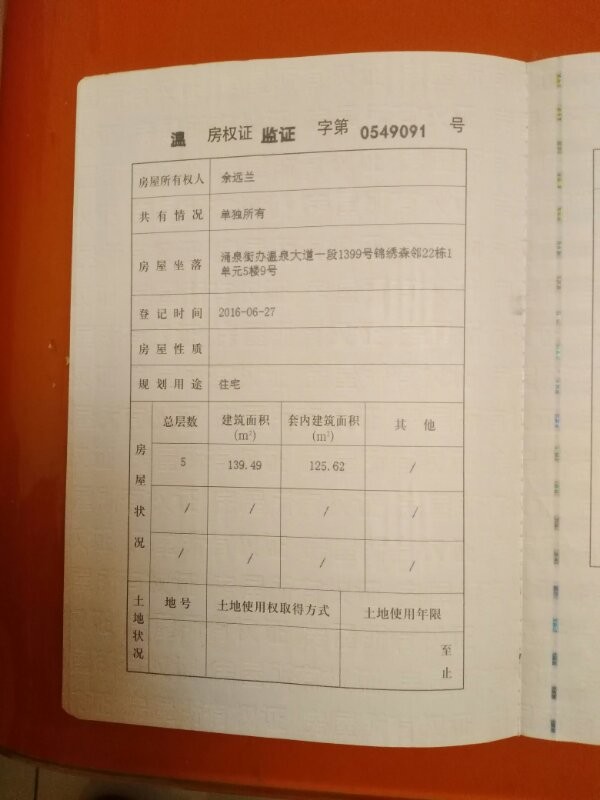 温 房权证 监证 字第 0549091 号
房屋所有权人 余远兰
共有情况 单独所有
房屋坐落 涌泉街办温泉大道一段1399号锦绣森邻22栋1
单元5楼9号
登记时间 2016-06-27
房屋性质
规划用途 住宅
房屋状况
总层数 建筑面积(m²) 套内建筑面积(m²) 其他
5 139.49 125.62 /
/ / / /
/ / / /
土地状况
地号 土地使用权取得方式 土地使用年限
至
止